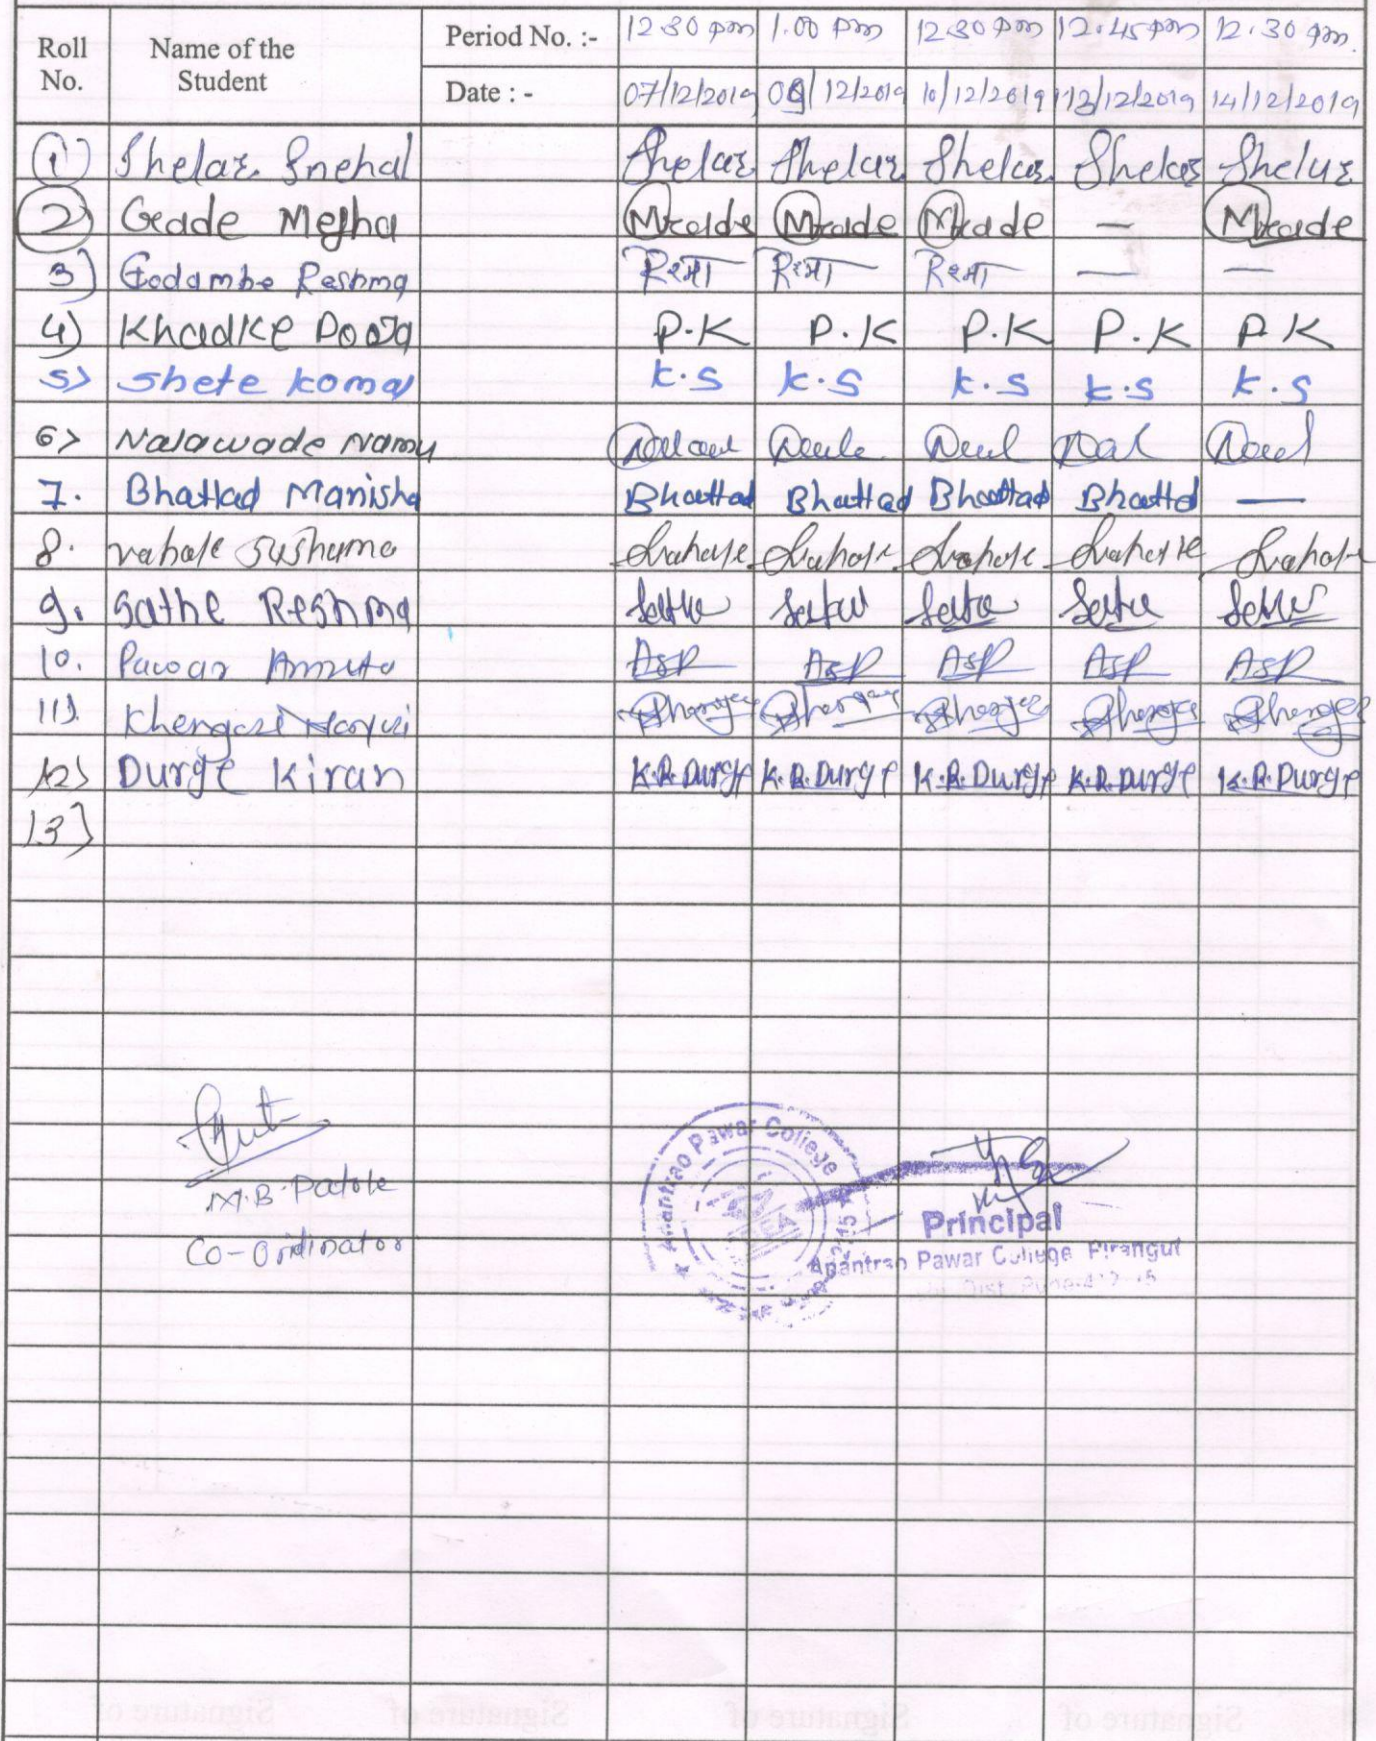 Roll No. Name of the Student Period No. :- 12.30 pm 1.00 pm 12.30 pm 12.45 pm 12.30 pm.
Date : - 07/12/2019 09/12/2019 10/12/2019 13/12/2019 14/12/2019
1) Shelar Snehal Shelar Shelar Shelar Shelar Shelar
2) Gade Megha Mgade Mgade Mgade — Mgade
3) Godambe Reshma रेश्मा रेश्मा रेश्मा — —
4) Khadke Pooja P.K P.K P.K P.K P.K
5) Shete komal K.S K.S K.S K.S K.S
6) Nalawade
7. Bhattad Manisha Bhattad Bhattad Bhattad Bhattd —
8. vahale Sushama
9. Sathe Reshma
10. Pawar Amruta ASP ASP ASP ASP ASP
11). Khengare
12) Durge Kiran K.R.Durge K.R.Durge K.R.Durge K.R.Durge K.R.Durge
13)
M.B. Patole
Co-ordinator
Anantrao Pawar College
Principal
Anantrao Pawar College Pirangut